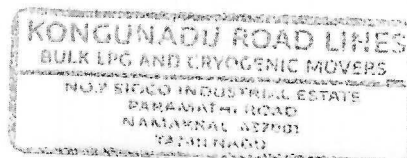 KONGUNADU ROAD LINES
BULK LPG AND CRYOGENIC MOVERS
NO.7 SIDCO INDUSTRIAL ESTATE
PARAMATHI ROAD
NAMAKKAL 637001
TAMIL NADU